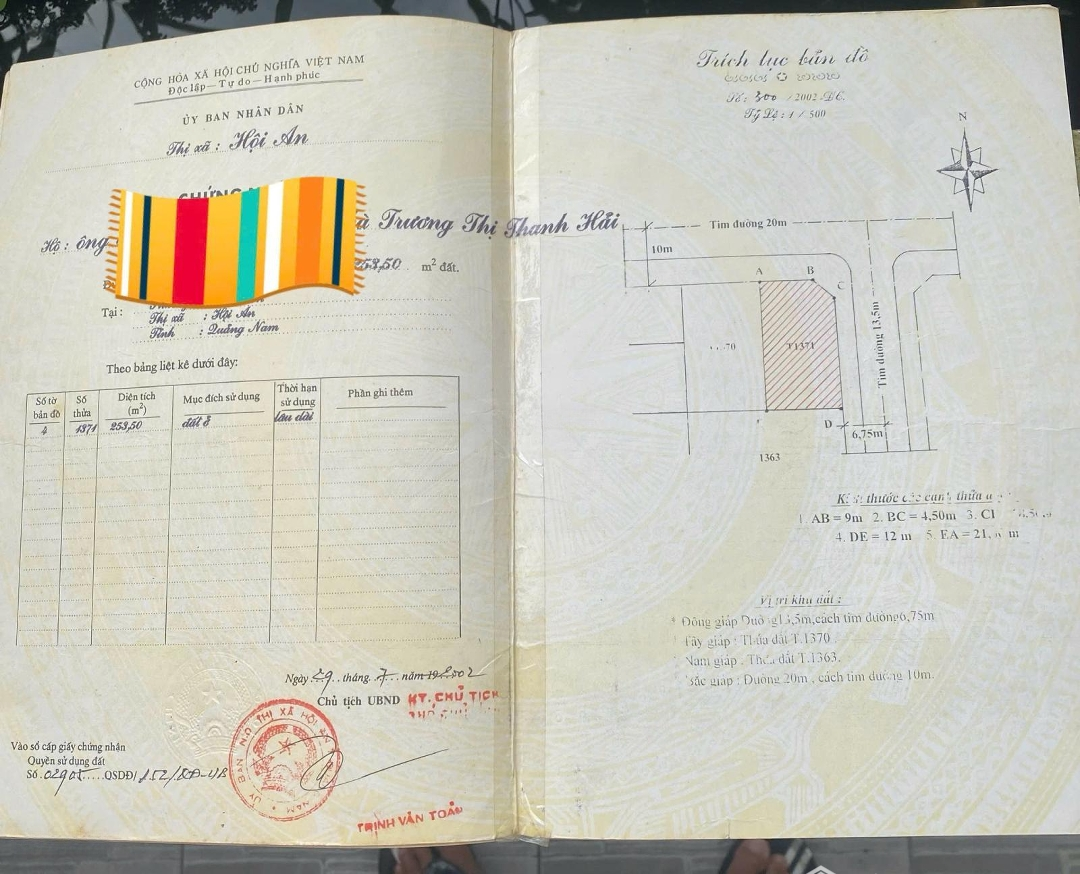 CỘNG HÒA XÃ HỘI CHỦ NGHĨA VIỆT NAM
Độc lập — Tự do — Hạnh phúc
ỦY BAN NHÂN DÂN
Thị xã : Hội An
Hộ : ông
à Trương Thị Thanh Hải
253,50 m² đất.
Tại :
Thị xã : Hội An
Tỉnh : Quảng Nam
Theo bảng liệt kê dưới đây:
Số tờ bản đồ
Số thửa
Diện tích (m²)
Mục đích sử dụng
Thời hạn sử dụng
Phần ghi thêm
4 1371 253,50 đất ở lâu dài
Ngày 29 tháng 7 năm 2002
Chủ tịch UBND KT. CHỦ TỊCH
Vào sổ cấp giấy chứng nhận
Quyền sử dụng đất
Số 02905 QSDĐ/
TRỊNH VĂN TOẢN
Trích lục bản đồ
Số: 300 /2002 ĐC.
Tỷ Lệ : 1 / 500
N
Tim đường 20m
10m
A
B
C
T1371
Tim đường 13,5m
D
6,75m
1363
1. AB = 9m 2. BC = 4,50m 3.
4. DE = 12 m 5. EA = 21, m
Vị trí khu đất :
Đông giáp Đường13,5m,cách tim đường6,75m
Tây giáp : Thửa đất T.1370
Nam giáp : Thửa đất T.1363.
Bắc giáp : Đường 20m , cách tim đường 10m.